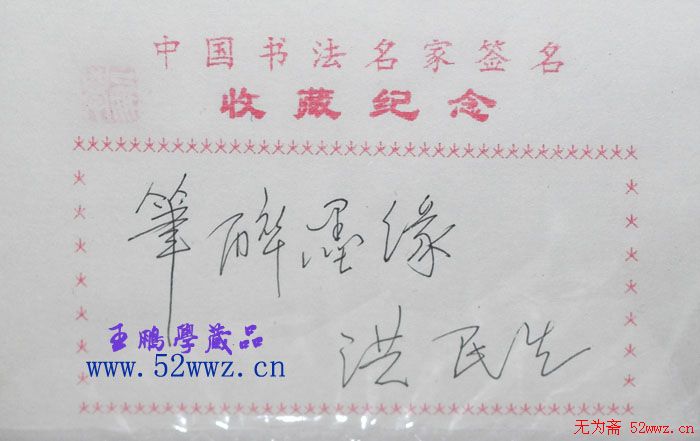 中国书法名家签名
收藏纪念
筆醉墨缘
洪民生
王鹏學藏品
www.52wwz.cn
无为斋 52wwz.cn